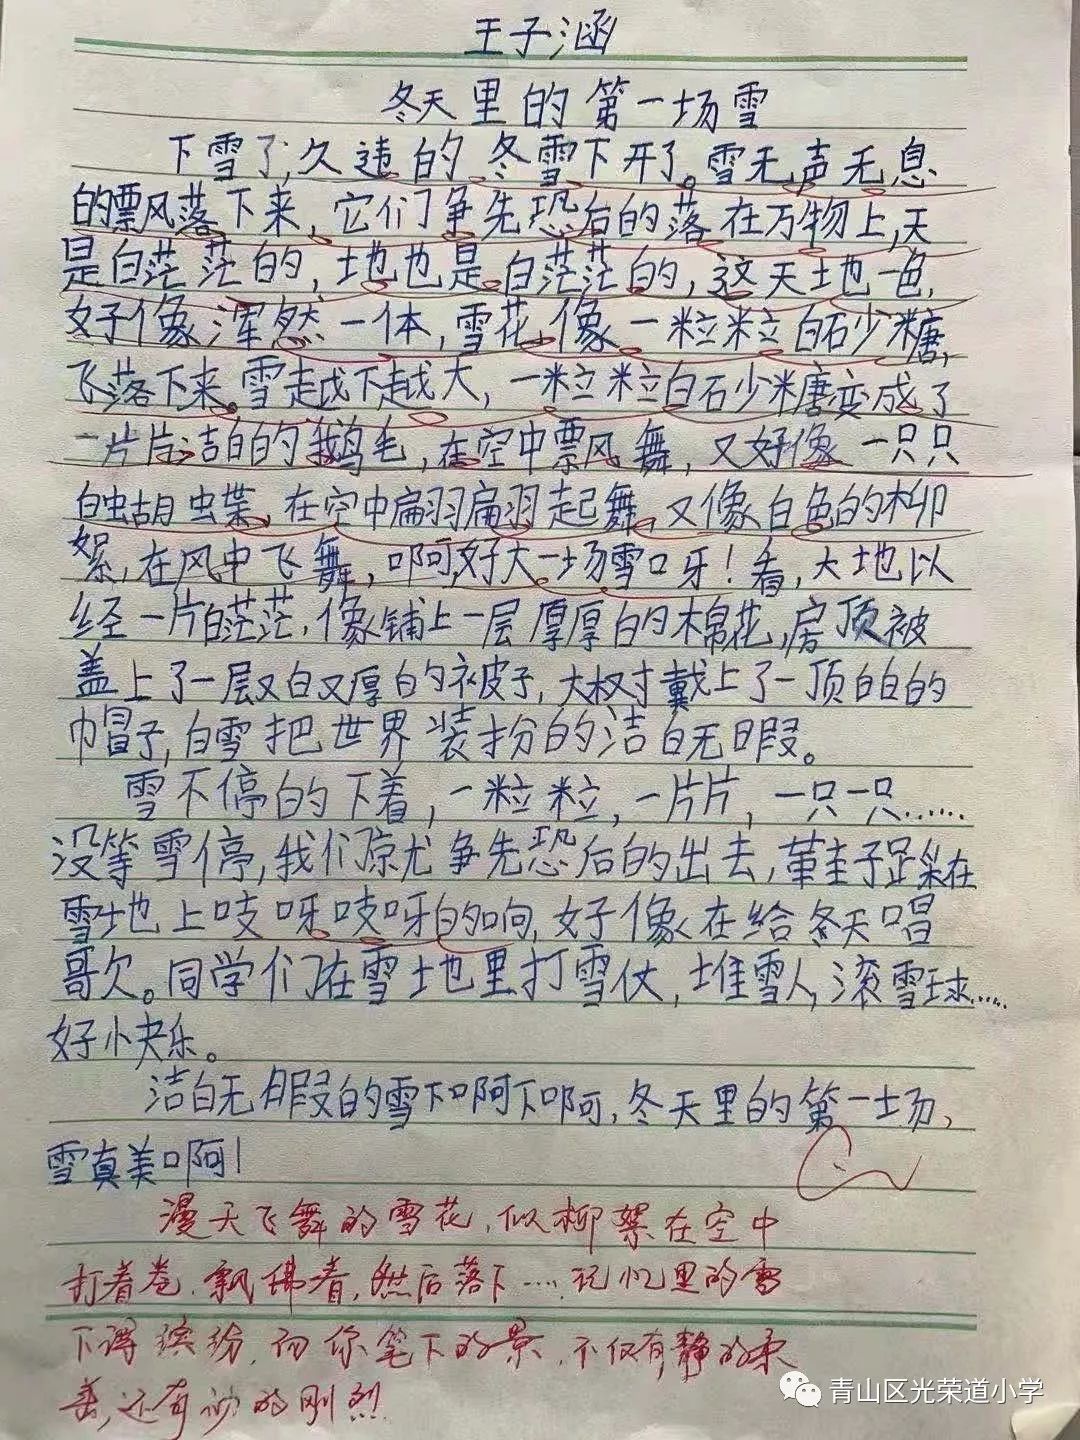 王子涵
冬天里的第一场雪
下雪了,久违的冬雪下开了。雪无声无息
的飘落下来,它们争先恐后的落在万物上,天
是白茫茫的,地也是白茫茫的,这天地一色,
好像浑然一体,雪花像一粒粒白砂糖,
飞落下来。雪越下越大,一粒粒白砂糖变成了
一片片洁白的鹅毛,在空中飘舞,又好像一只只
白蝴蝶,在空中翩翩起舞,又像白色的柳
絮,在风中飞舞,啊,好大一场雪呀!看,大地以
经一片白茫茫,像铺上一层厚厚的棉花,房顶被
盖上了一层又白又厚的被子,大树戴上了一顶白白的
巾帽子,白雪把世界装扮的洁白无暇。
雪不停的下着,一粒粒,一片片,一只一只……
没等雪停,我们就争先恐后的出去,鞋子踩在
雪地上吱呀吱呀的响,好像在给冬天唱
歌。同学们在雪地里打雪仗,堆雪人,滚雪球……
好不快乐。
洁白无暇的雪下啊下啊,冬天里的第一场,
雪真美啊!
漫天飞舞的雪花,似柳絮在空中
打着卷,飘拂着,然后落下……记忆里的雪
下得缤纷,而你笔下的景,不仅有静的柔
美,还有沙的刚烈!
青山区光荣道小学